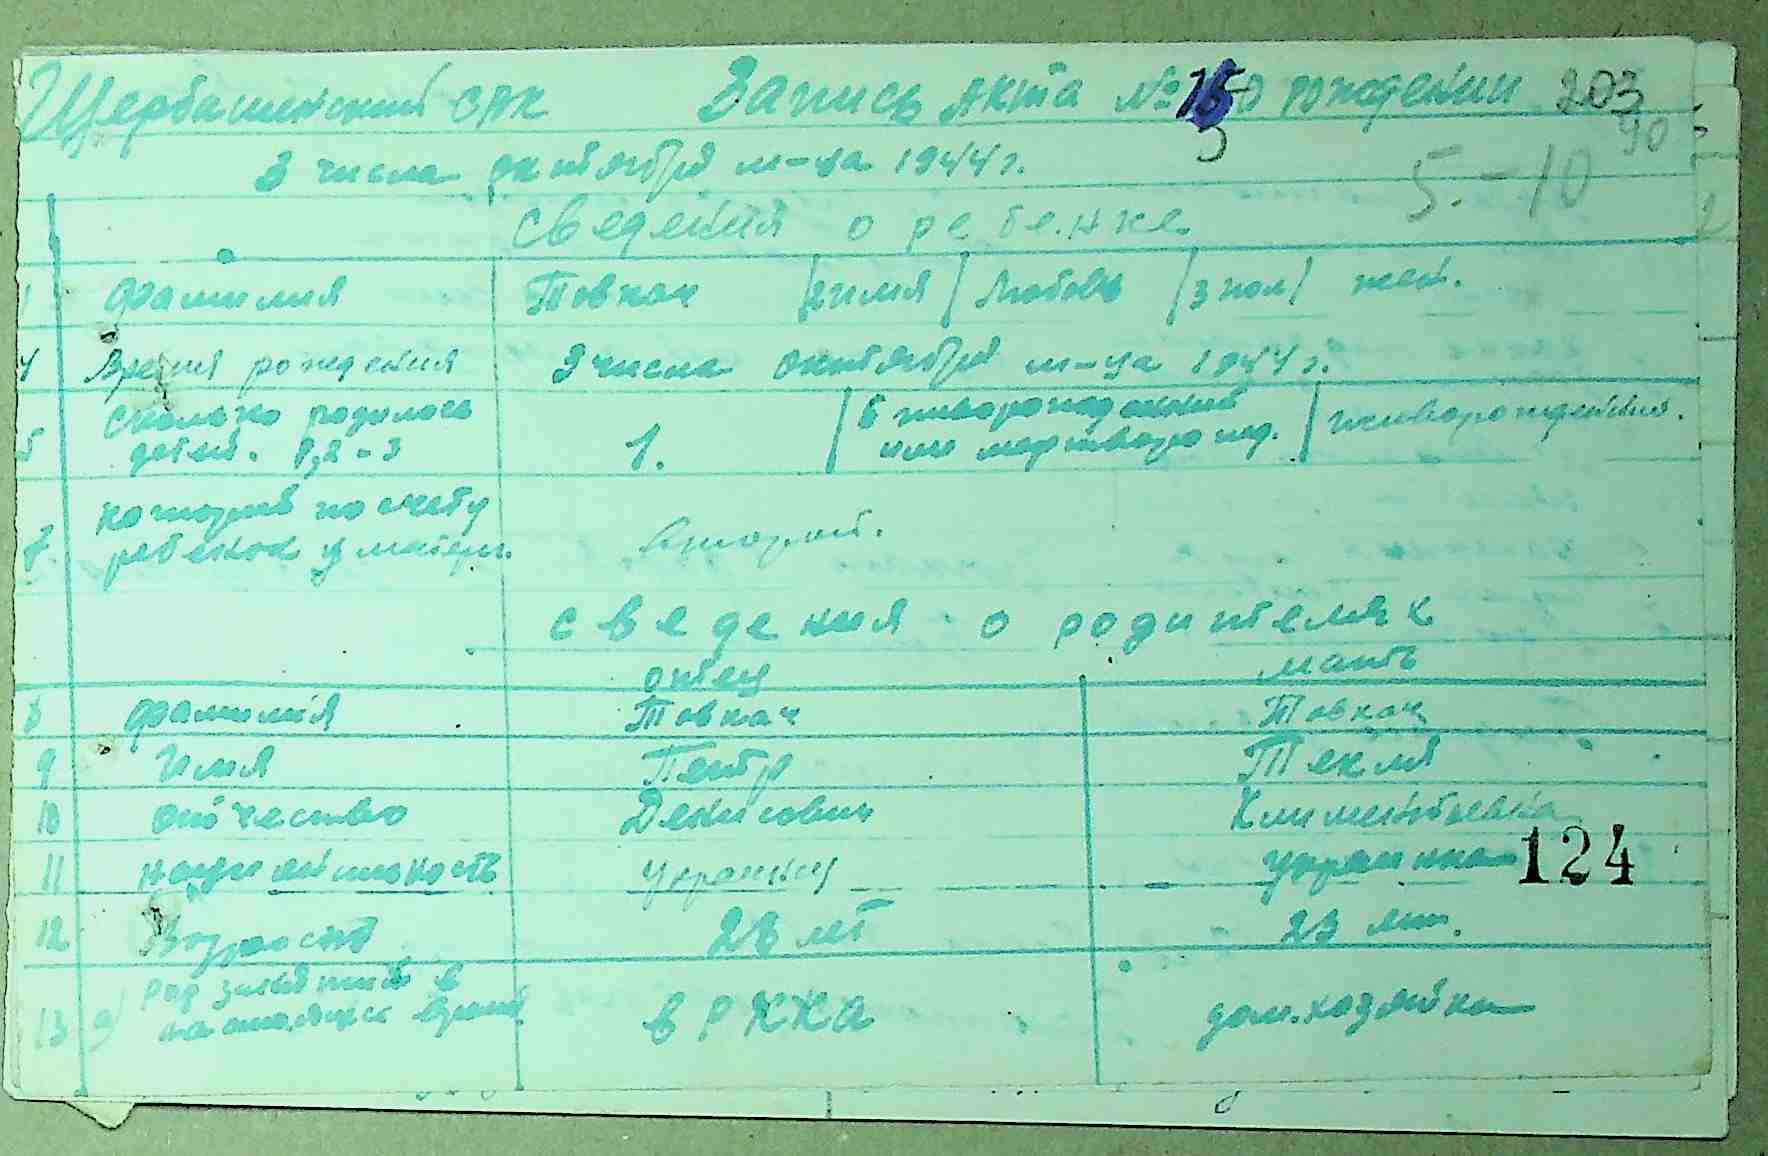 Щербашинский САК Запись акта № 15 о рождении 203
5 90
3 числа октября м-ца 1944 г. 5.-10
сведения о ребенке
1 фамилия Товкач 2 имя Любовь 3 пол жен.
4 Время рождения 3 числа октября м-ца 1944 г.
5 Сколько родилось детей. 1, 2 - 3 1. 6 живорожденный или мертворожд. живорожденный.
7. который по счету ребенок у матери. второй.
сведения о родителях
отец мать
8 фамилия Товкач Товкач
9 Имя Петр Текля
10 отчество Денисович Климентьевна
11 национальность украинец украинка 124
12 Возраст 28 лет 23 лет.
13 а) род занятий в настоящее время в РККА дом.хозяйка